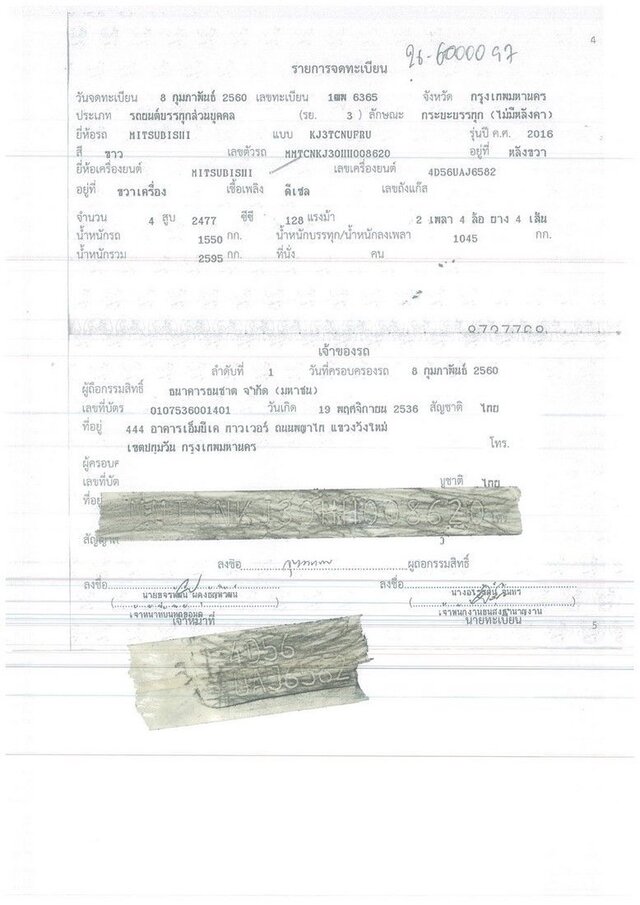 4
96-6000097
รายการจดทะเบียน
วันจดทะเบียน 8 กุมภาพันธ์ 2560 เลขทะเบียน 1ฒพ 6365 จังหวัด กรุงเทพมหานคร
ประเภท รถยนต์บรรทุกส่วนบุคคล (รย. 3 ) ลักษณะ กระบะบรรทุก (ไม่มีหลังคา)
ยี่ห้อรถ MITSUBISHI แบบ KJ3TCNUFRU รุ่นปี ค.ศ. 2016
สี ขาว เลขตัวรถ MMTCNKJ30HH008620 อยู่ที่ หลังขวา
ยี่ห้อเครื่องยนต์ MITSUBISHI เลขเครื่องยนต์ 4D56UAJ6582
อยู่ที่ ขวาเครื่อง เชื้อเพลิง ดีเซล เลขถังแก๊ส
จำนวน 4 สูบ 2477 ซีซี 128 แรงม้า 2 เพลา 4 ล้อ ยาง 4 เส้น
น้ำหนักรถ 1550 กก. น้ำหนักบรรทุก/น้ำหนักลงเพลา 1045 กก.
น้ำหนักรวม 2595 กก. ที่นั่ง คน
เจ้าของรถ
ลำดับที่ 1 วันที่ครอบครองรถ 8 กุมภาพันธ์ 2560
ผู้ถือกรรมสิทธิ์ ธนาคารธนชาต จำกัด (มหาชน)
เลขที่บัตร 0107536001401 วันเกิด 19 พฤศจิกายน 2536 สัญชาติ ไทย
ที่อยู่ 444 อาคารเอ็มบีเค ทาวเวอร์ ถนนพญาไท แขวงวังใหม่
เขตปทุมวัน กรุงเทพมหานคร โทร.
ผู้ครอบค
เลขที่บัต ไทย
ที่อยู่
ลงชื่อ ผู้ถือกรรมสิทธิ์
ลงชื่อ ลงชื่อ
เจ้าหน้าที่ นายทะเบียน
5
4D56
UAJ6582